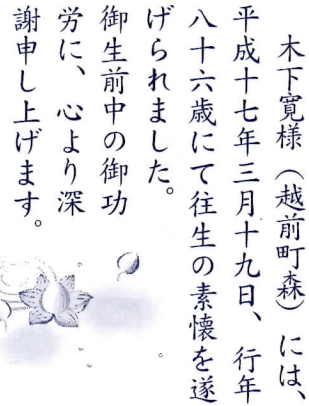 木下寛様（越前町森）には、
平成十七年三月十九日、行年
八十六歳にて往生の素懐を遂
げられました。
御生前中の御功
労に、心より深
謝申し上げます。